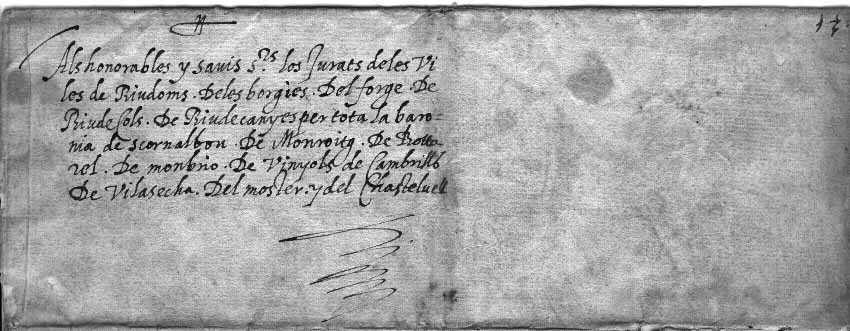 Als honorables y savis s.rs los Jurats deles Vi
les de Riudoms. Deles borgies. Del forge. De
Riudecols. De Riudecanyes per tota la baro-
nia de scornalbou. De Monroitg. De Botta
rel. De monbrio. De Vinyols de Cambrills
De Vilasecha. Del moster. y del Chastelvell